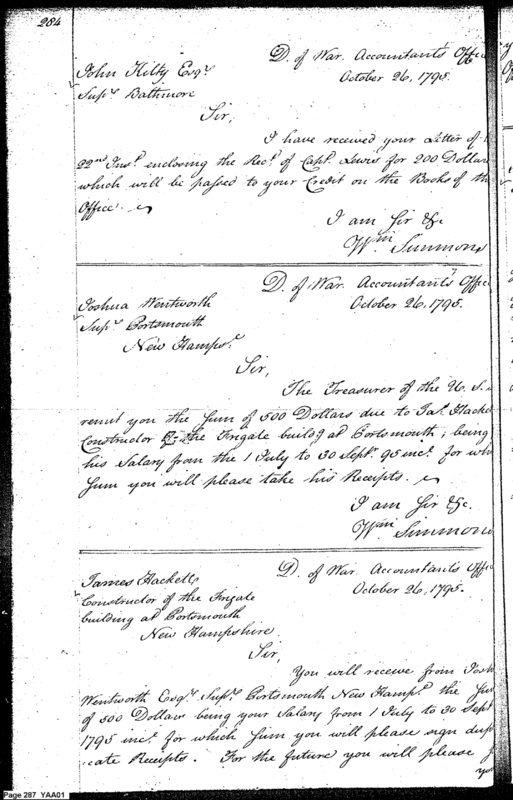 284
D. of War. Accountants Offi
October 26, 1795.
John Kilty Esqr
Supr Baltimore
Sir,
I have received your Letter of
22nd Inst enclosing the Rect of Capt Lewis for 200 Dollar
which will be passed to your Credit on the Books of th
Office.
I am Sir &c
Wm Simmons
D. of War. Accountant's Offic
October 26, 1795.
Joshua Wentworth
Supr Portsmouth
New Hampsr
Sir,
The Treasurer of the U. S.
remit you the Sum of 500 Dollars due to Jas Hacke
Constructor the Frigate buildg at Portsmouth; being
his Salary from the 1 July to 30 Sept 95 inct for wh
Sum you will please take his Receipts.
I am Sir &c.
Wm Simmon
D. of War. Accountants Offi
October 26, 1795.
James Hackett
Constructor of the Frigate
building at Portsmouth
New Hampshire.
Sir,
You will receive from Josh
Wentworth Esqr Supr Portsmouth New Hampr the Su
of 500 Dollars being your Salary from 1 July to 30 Sept
1795 inct for which Sum you will please sign dup
icate Receipts. For the future you will please
yo
Page 287 YAA01